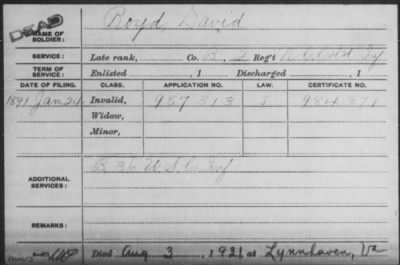 DEAD
NAME OF SOLDIER: Boyd, David
SERVICE: Late rank, Co. B, 2 Reg't U.S. Col'd Inf
TERM OF SERVICE: Enlisted , 1 Discharged , 1
DATE OF FILING. CLASS. APPLICATION NO. LAW. CERTIFICATE NO.
1891 Jan 24 Invalid, 987313 984871
Widow,
Minor,
ADDITIONAL SERVICES: B 36 U.S.C. Inf
REMARKS:
Died Aug 3, 1921 at Lynnhaven, Va